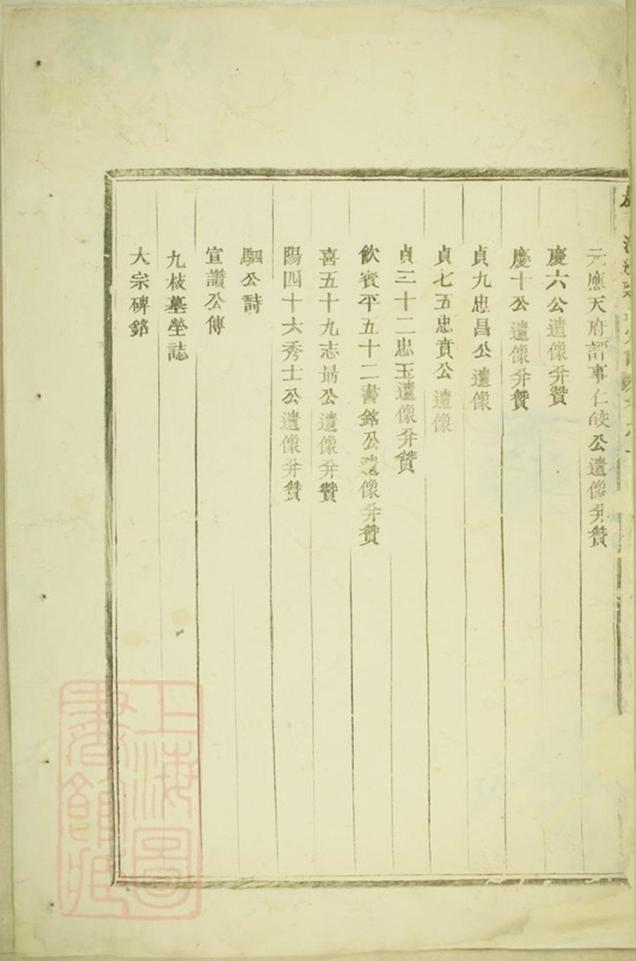 元應天府評事仁皎公遺像并贊
慶六公遺像并贊
慶十公遺像并贊
貞九忠昌公遺像
貞七五忠賁公遺像
貞三十二忠玉遺像并贊
飲賓平五十二書銘公遺像并贊
喜五十九志昂公遺像并贊
陽四十六秀士公遺像并贊
駰公詩
宣讚公傳
九枝墓塋誌
大宗碑銘
上海圖書館藏